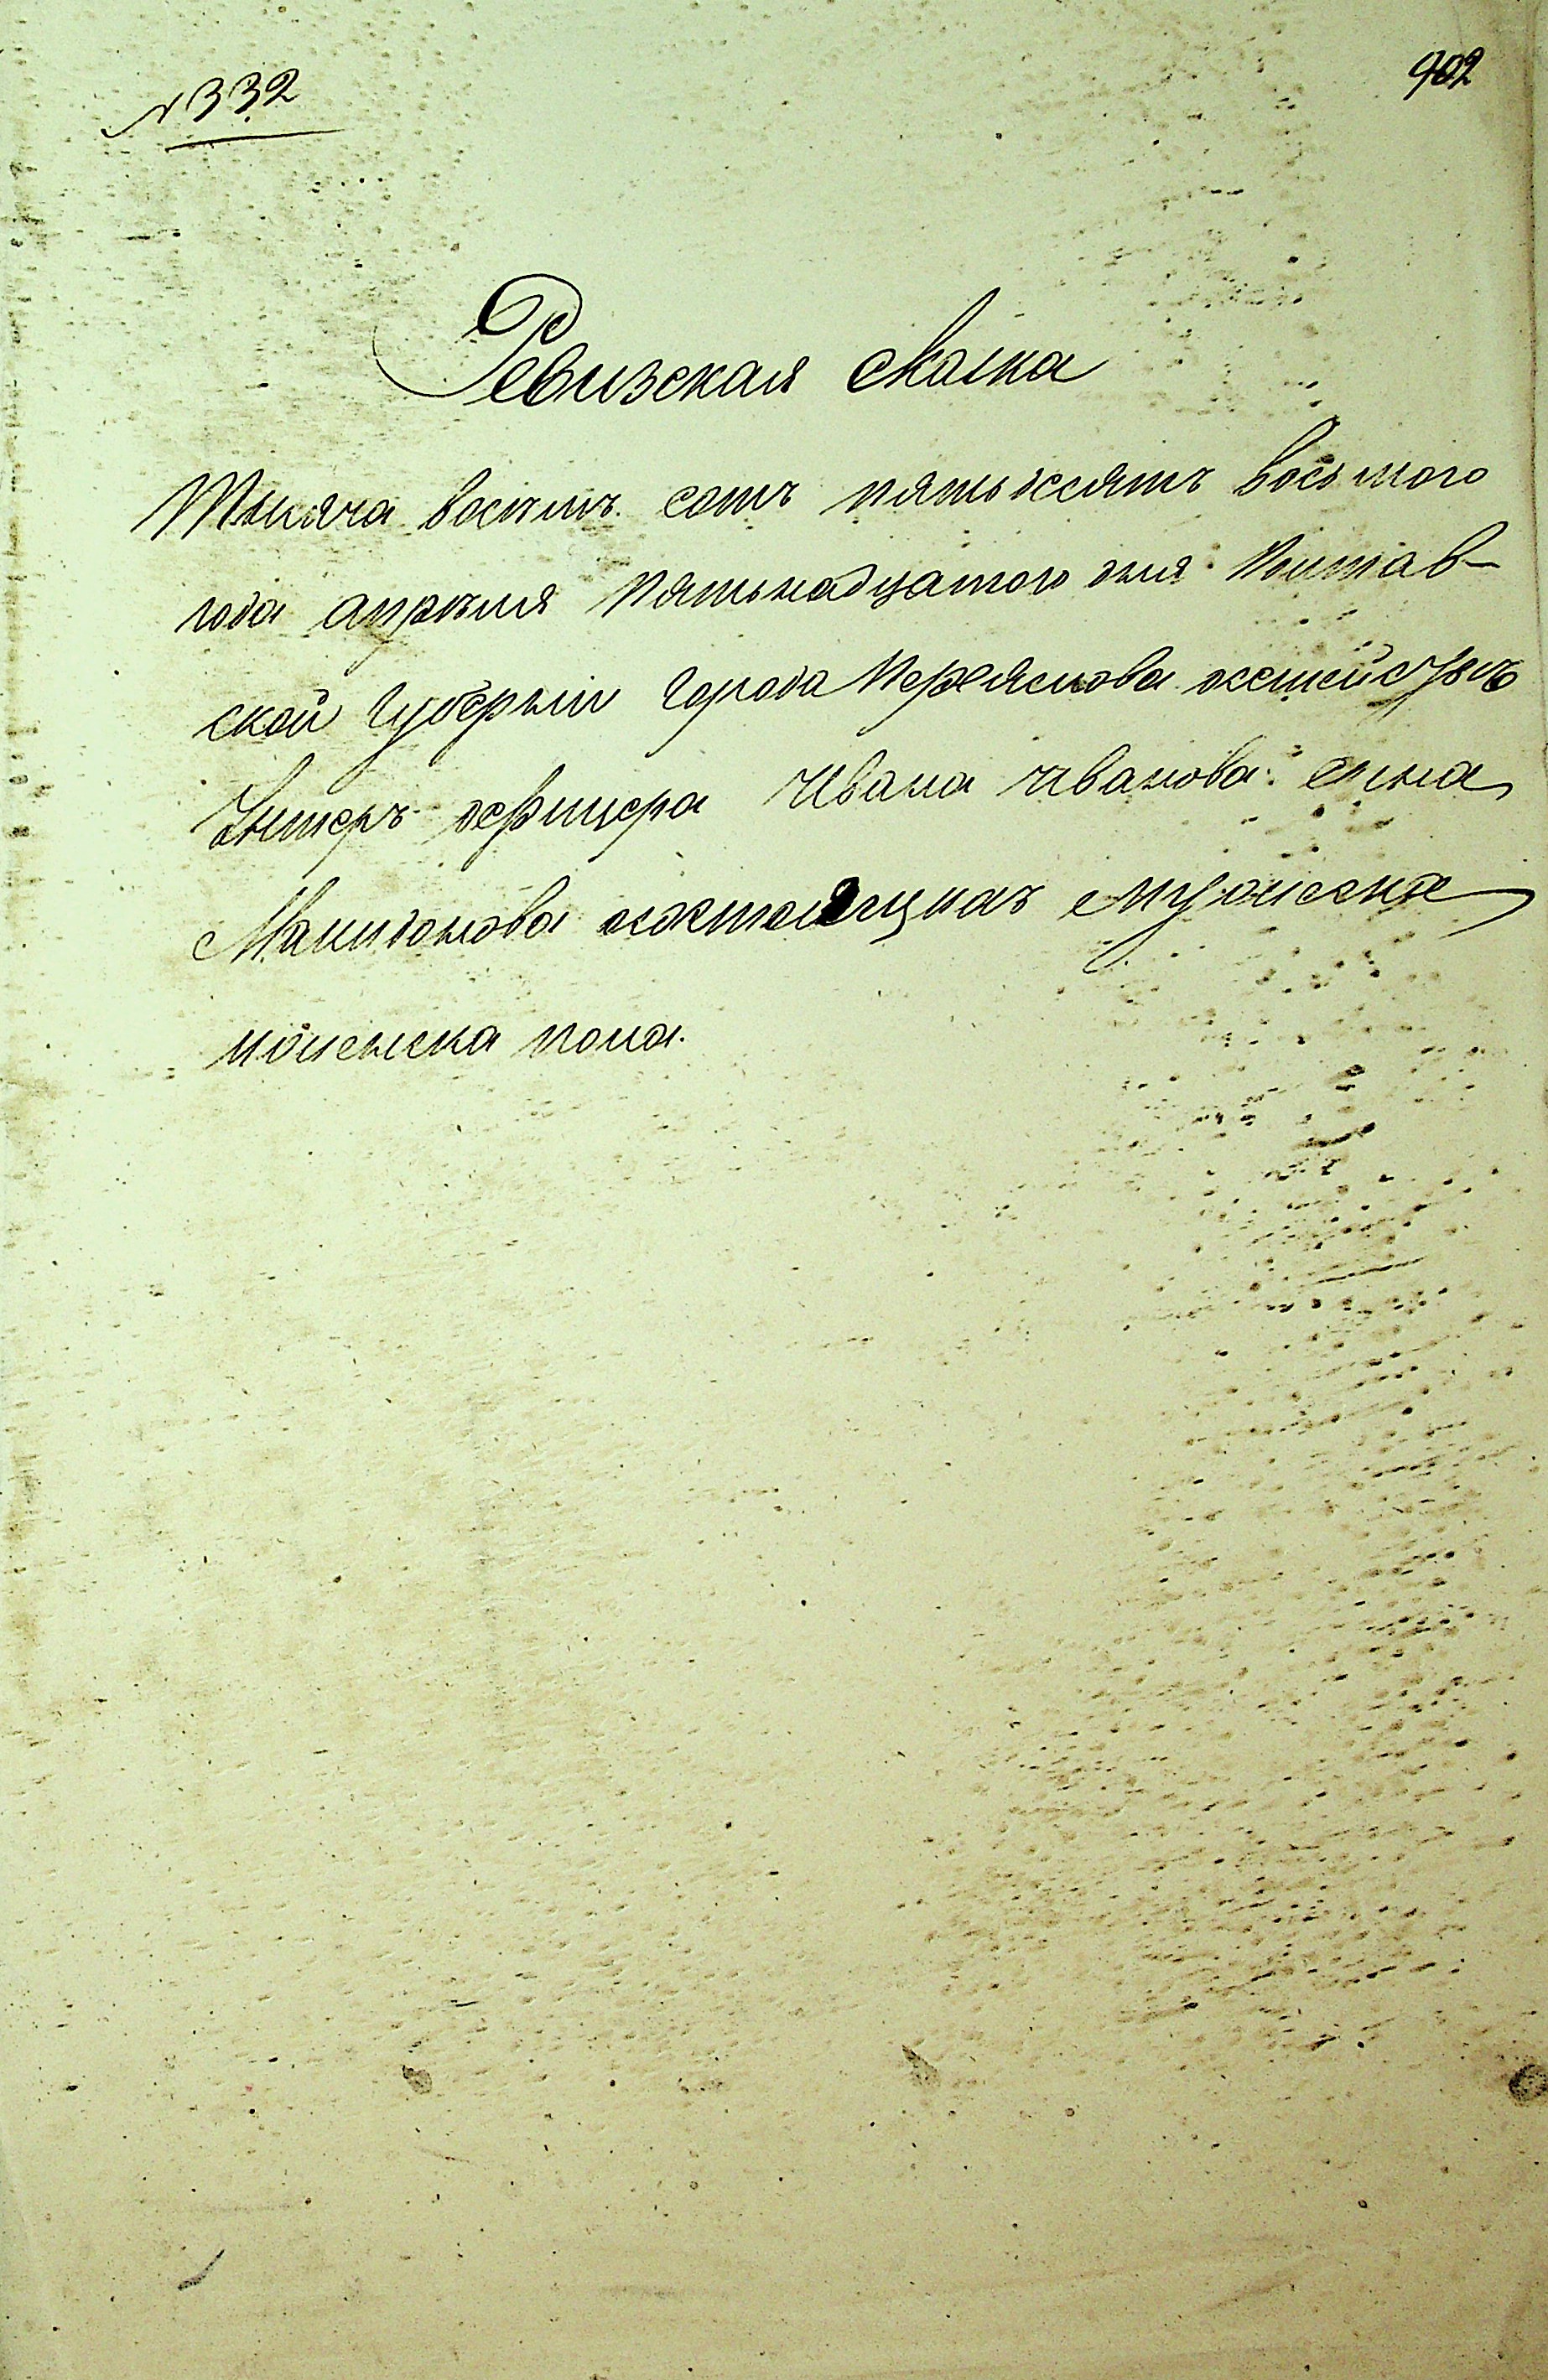 № 332
902
Ревизская сказка
Тысяча восемь сотъ пятьдесятъ восьмого
года апреля пятьнадцатого дня Полтав-
ской Губернии Города Переяслова
Унтеръ офицера Ивана Иванова сына
Макидонова состоящихъ мужеска
и женска пола.